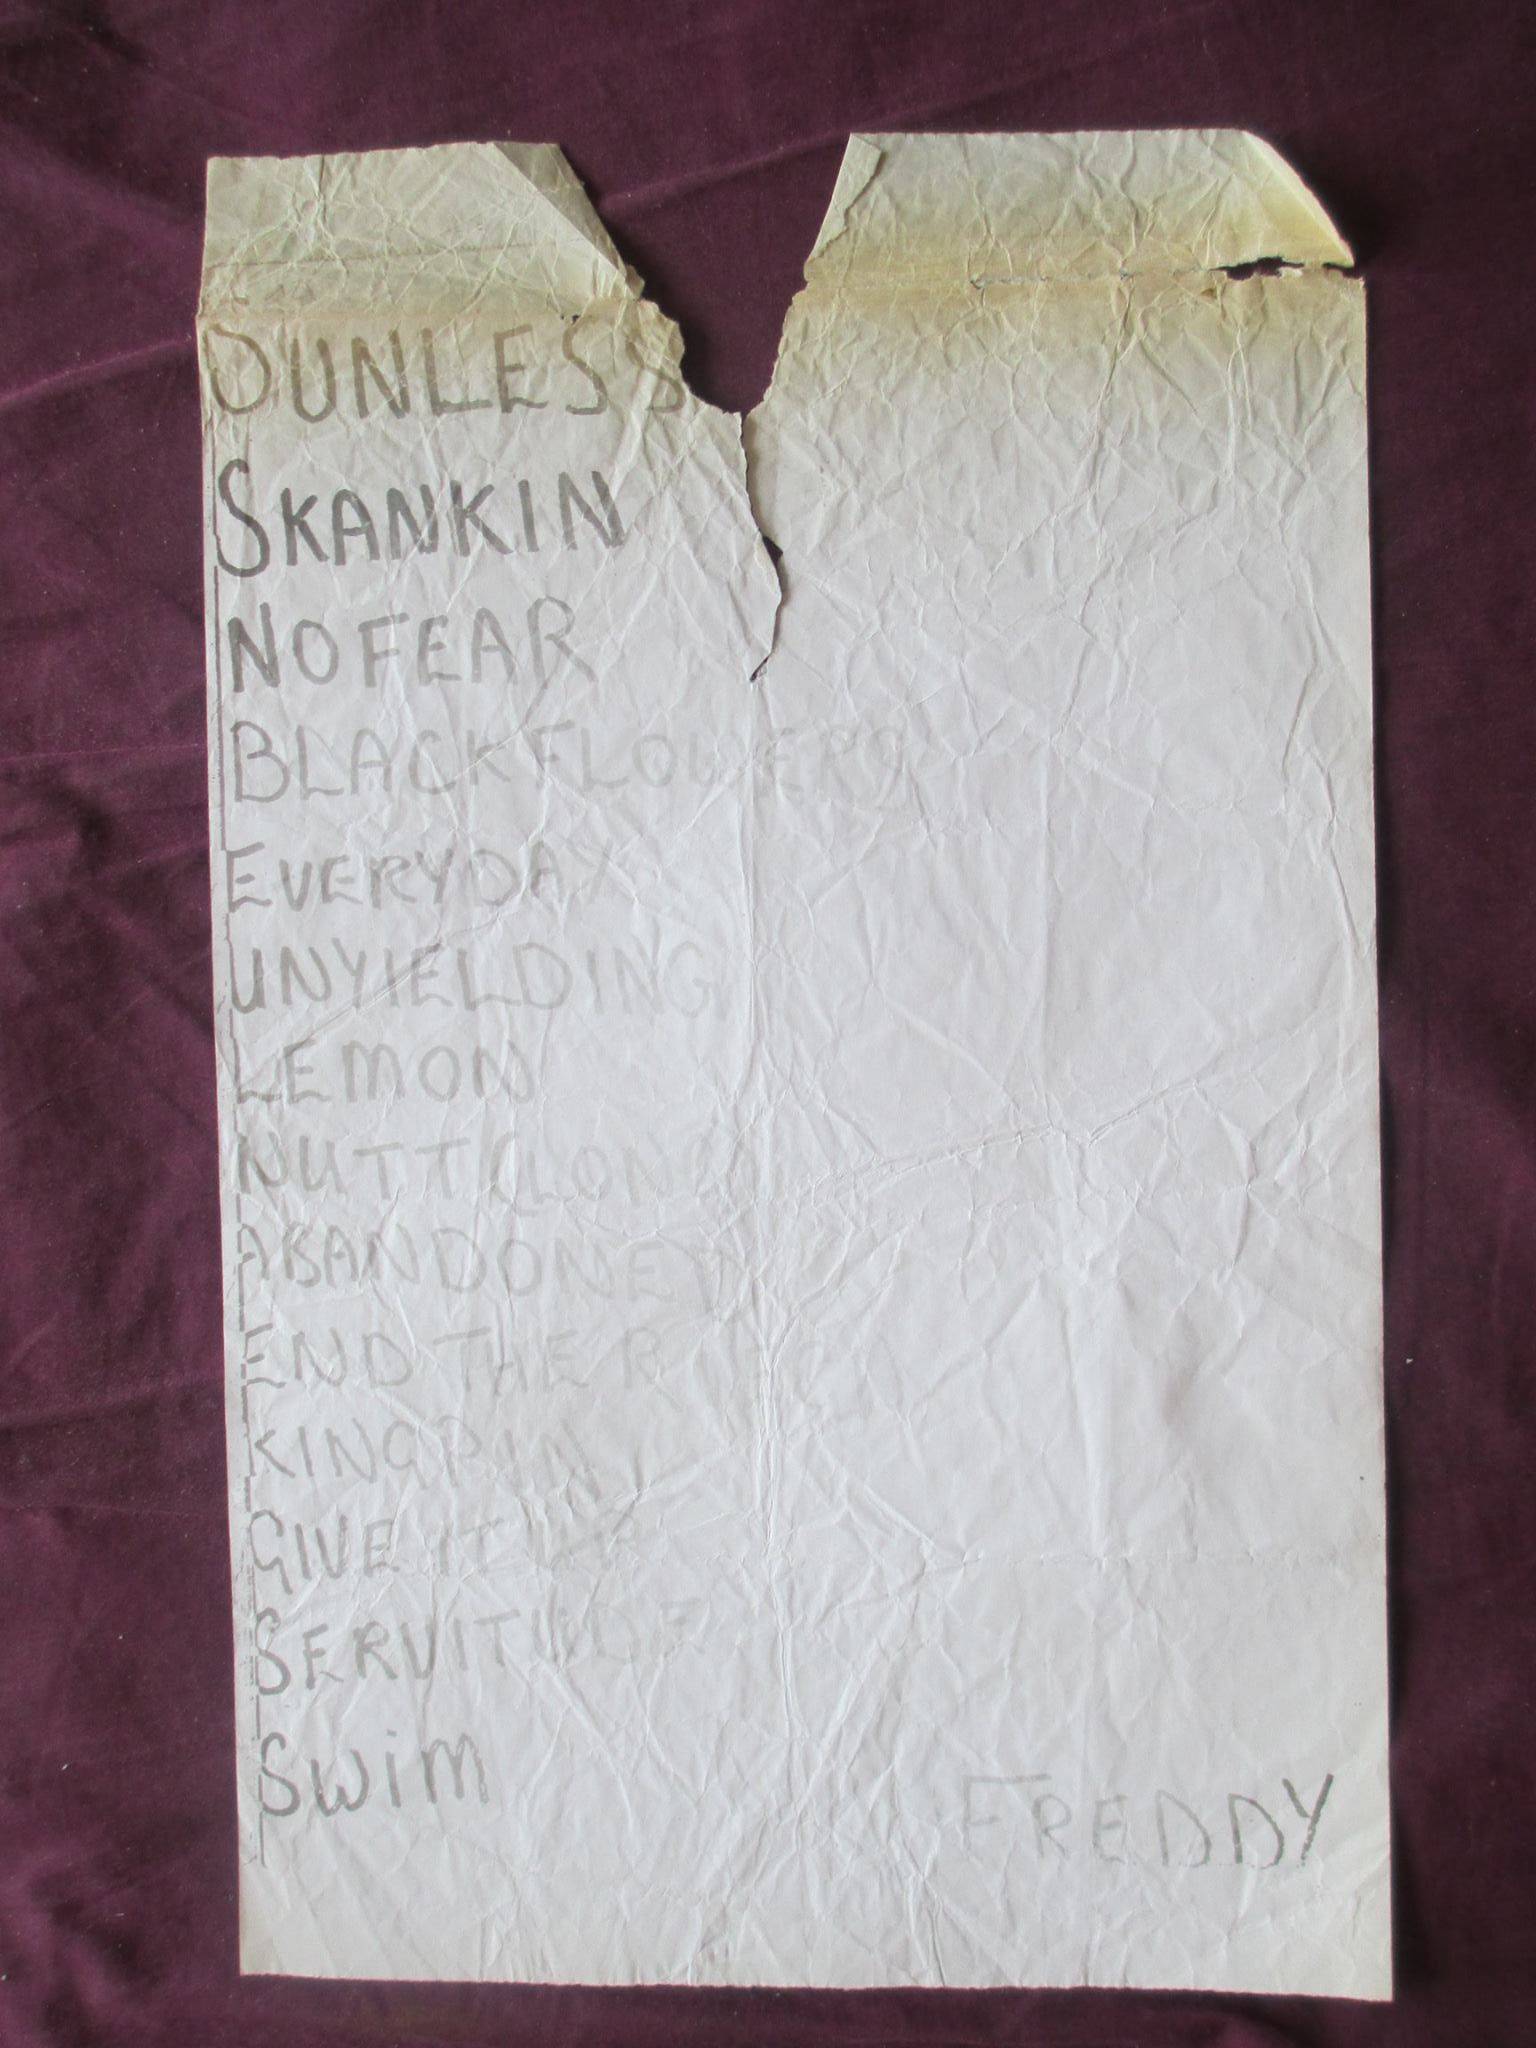 SUNLESS
SKANKIN
NO FEAR
BLACKFLOWERS
EVERYDAY
UNYIELDING
LEMON
NUTT (LONG
ABANDONED
END THE R
KINGPIN
GIVE IT UP
SERVITUDE
SWiM
FREDDY